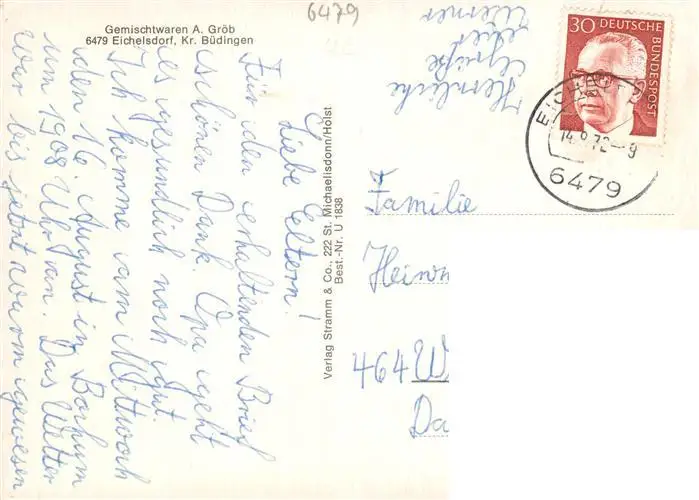 6479
Gemischtwaren A. Gröb
6479 Eichelsdorf, Kr. Büdingen
Liebe Eltern!
Für den erhaltenden Brief
schönen Dank. Opa geht
es gesundlich noch gut.
Ich komme am Mittwoch
den 16. August in Bochum
um 19 08 Uhr an. Das Wetter
war bis jetzt warm gewesen
Herzliche
Grüße
euer
Werner
Verlag Stramm & Co., 222 St. Michaelisdonn/Holst
Best.-Nr. U 1838
30 DEUTSCHE BUNDESPOST
14.8.72-9
6479
Familie
Heinr
464 W
Da